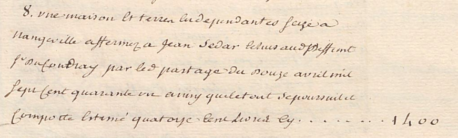 8. une maison et terres en dependantes seize a
nangeville affermez a Jean Sedar
Sr Du Coudray par led partage du douze avril mil
sept cent quarante un ainsy quele tout se poursuit et
comporte Estimé quatorze cent livres cy . . . . . . . . 1400